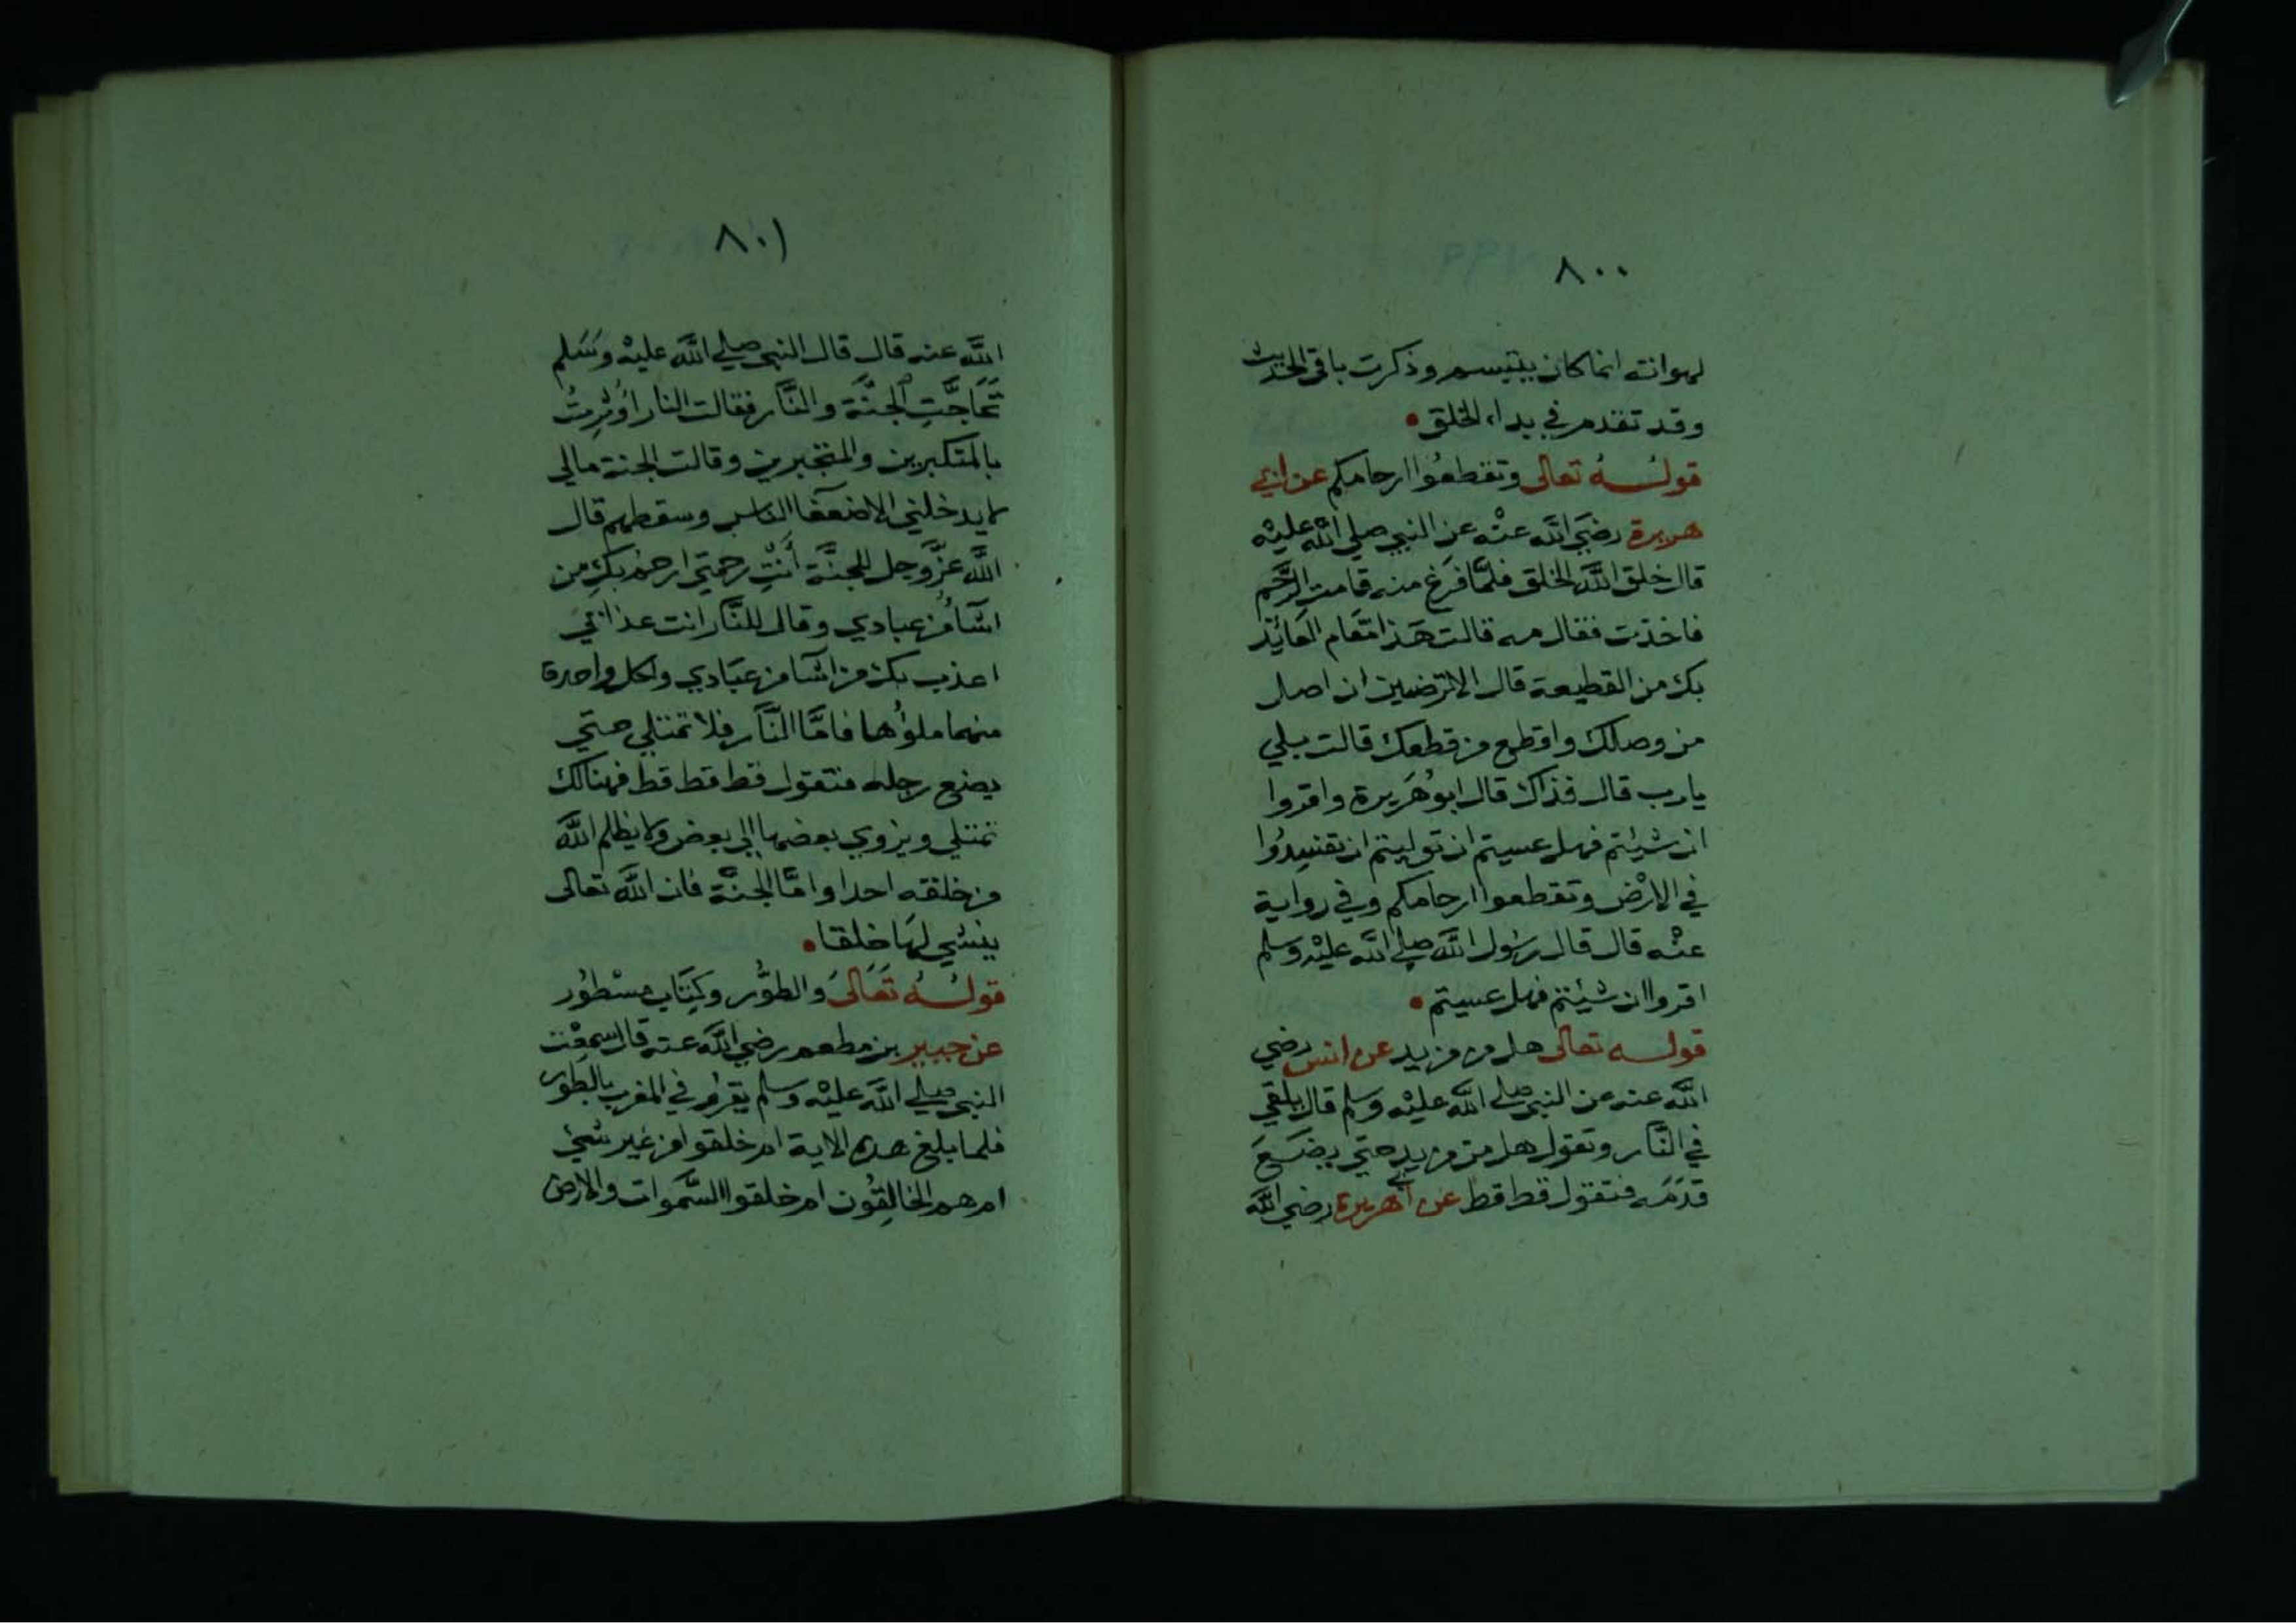 ٨٠٠
لهواته انما كان يتبسم وذكرت باقي الحديث
وقد تقدم في بداء الخلق
قوله تعالى وتقطعوا ارحامكم عن ابي
هريرة رضي الله عنه عن النبي صلي الله عليه
قال خلق الله الخلق فلما فرغ منه قامت الرحم
فاخذت فقال مه قالت هذا مقام العائذ
بك من القطيعة قال الا ترضين ان اصل
من وصلك واقطع من قطعك قالت بلي
يارب قال فذاك قال ابو هريرة واقروا
ان شيئتم فهل عسيتم ان توليتم ان تفسدوا
في الارض وتقطعوا ارحامكم وفي رواية
عنه قال قال رسول الله صلي الله عليه وسلم
اقروا ان شيئتم فهل عسيتم
قوله تعالى هل من مزيد عن انس رضي
الله عنه عن النبي صلي الله عليه وسلم قال يلقي
في النار وتقول هل من مزيد حتي يضع
قدمه فتقول قط قط عن ابي هريرة رضي الله
٨٠١
الله عنه قال قال النبي صلي الله عليه وسلم
تَحَاجَّتِ الجنَّة والنَّار فقالت النار اُوْثِرتُ
بالمتكبرين والمتجبرين وقالت الجنة مالي
لا يدخلني الا ضعفا الناس وسقطهم قال
الله عزَّ وجل للجنَّة أنْتِ رحمتي ارحم بكِ من
اشآ من عبادي وقال للنَّار انت عذابي
اعذب بك من اشآ من عبادي ولكل واحدة
منهما ملؤها فامَّا النَّار فلا تمتلي حتي
يضع رجله فتقول قط قط قط فهنالك
تمتلي ويزوي بعضها الي بعض ولا يظلم الله
من خلقه احدا وامّا الجنّة فان الله تعالى
ينشي لها خلقا
قولهُ تَعَالىَ والطوُّر وكِتَاب مسْطوُر
عن جبير بن مطعم رضي الله عنه قال سمعْت
النبي صلي الله عليه وسلم يقرؤ في المغرب بالطور
فلما بلغ هذه الاية ام خلقوا من غير شيئ
ام هم الخالِقوُن ام خلقوا السَّموات والارض